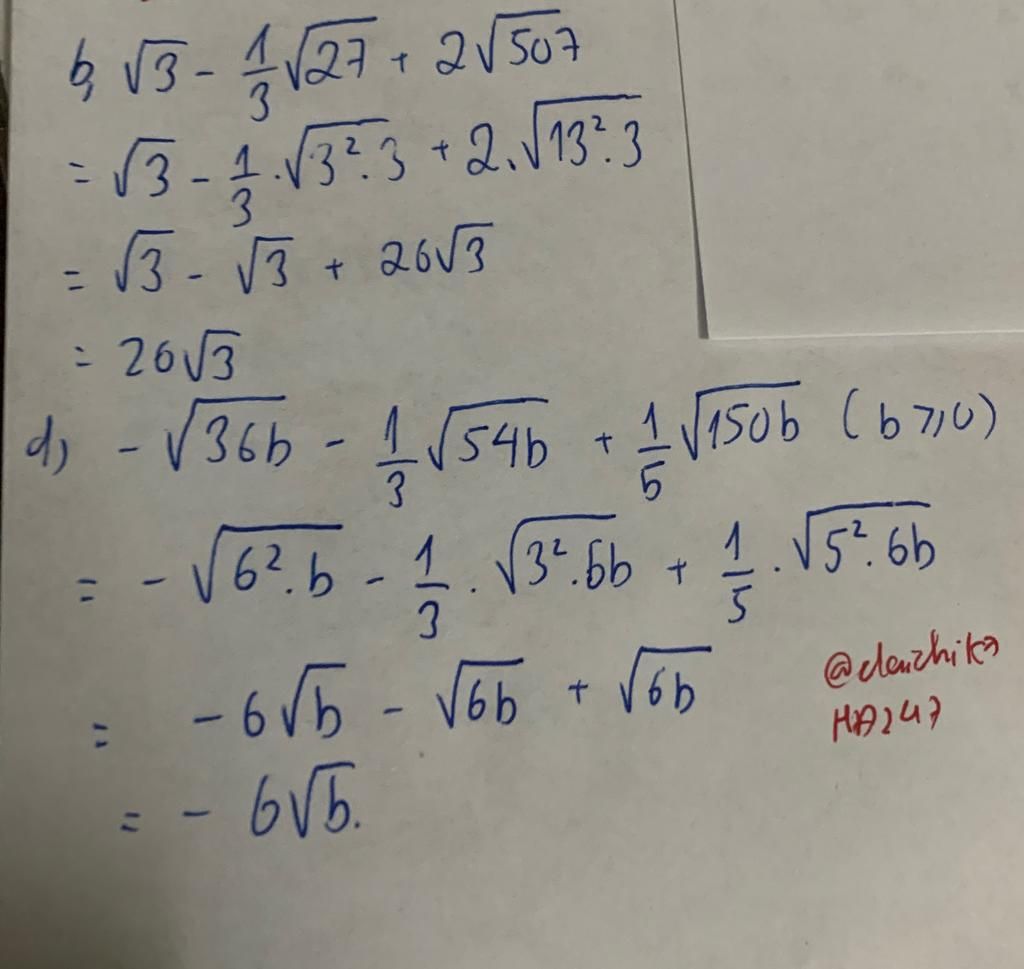 b, √3 - 1/3 √27 + 2√507
= √3 - 1/3 . √3². 3 + 2. √13². 3
= √3 - √3 + 26√3
= 26√3
d, - √36b - 1/3 √54b + 1/5 √150b (b ⩾ 0)
= - √6². b - 1/3 . √3². 6b + 1/5 . √5². 6b
= - 6√b - √6b + √6b
= - 6√b.